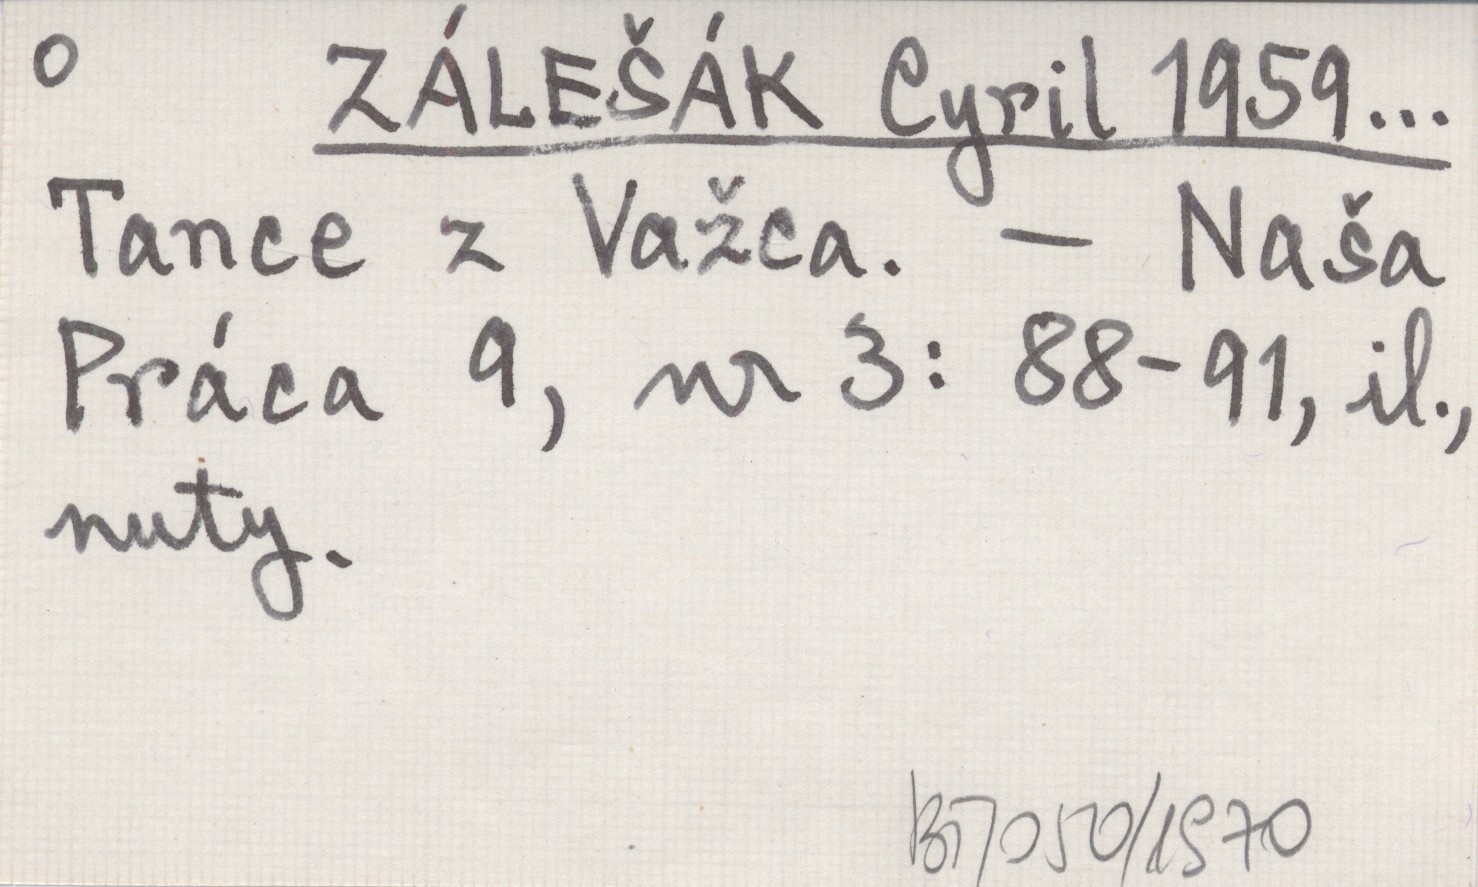 o ZÁLEŠÁK Cyril 1959...
Tance z Važca. — Naša
Práca 9, nr 3: 88-91, il.,
nuty.